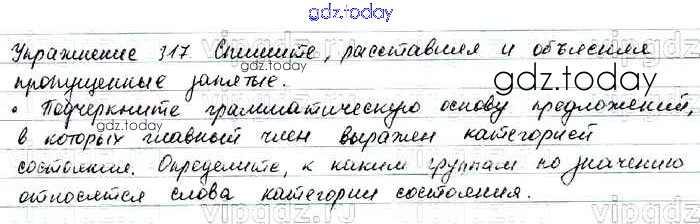 gdz.today
Упражнение 317. Спишите, расставляя и объясняя
gdz.today
пропущенные запятые.
gdz.today
• Подчеркните грамматическую основу предложений,
gdz.today
в которых главный член выражен категорией
состояния. Определите, к каким группам по значению
относятся слова категории состояния.